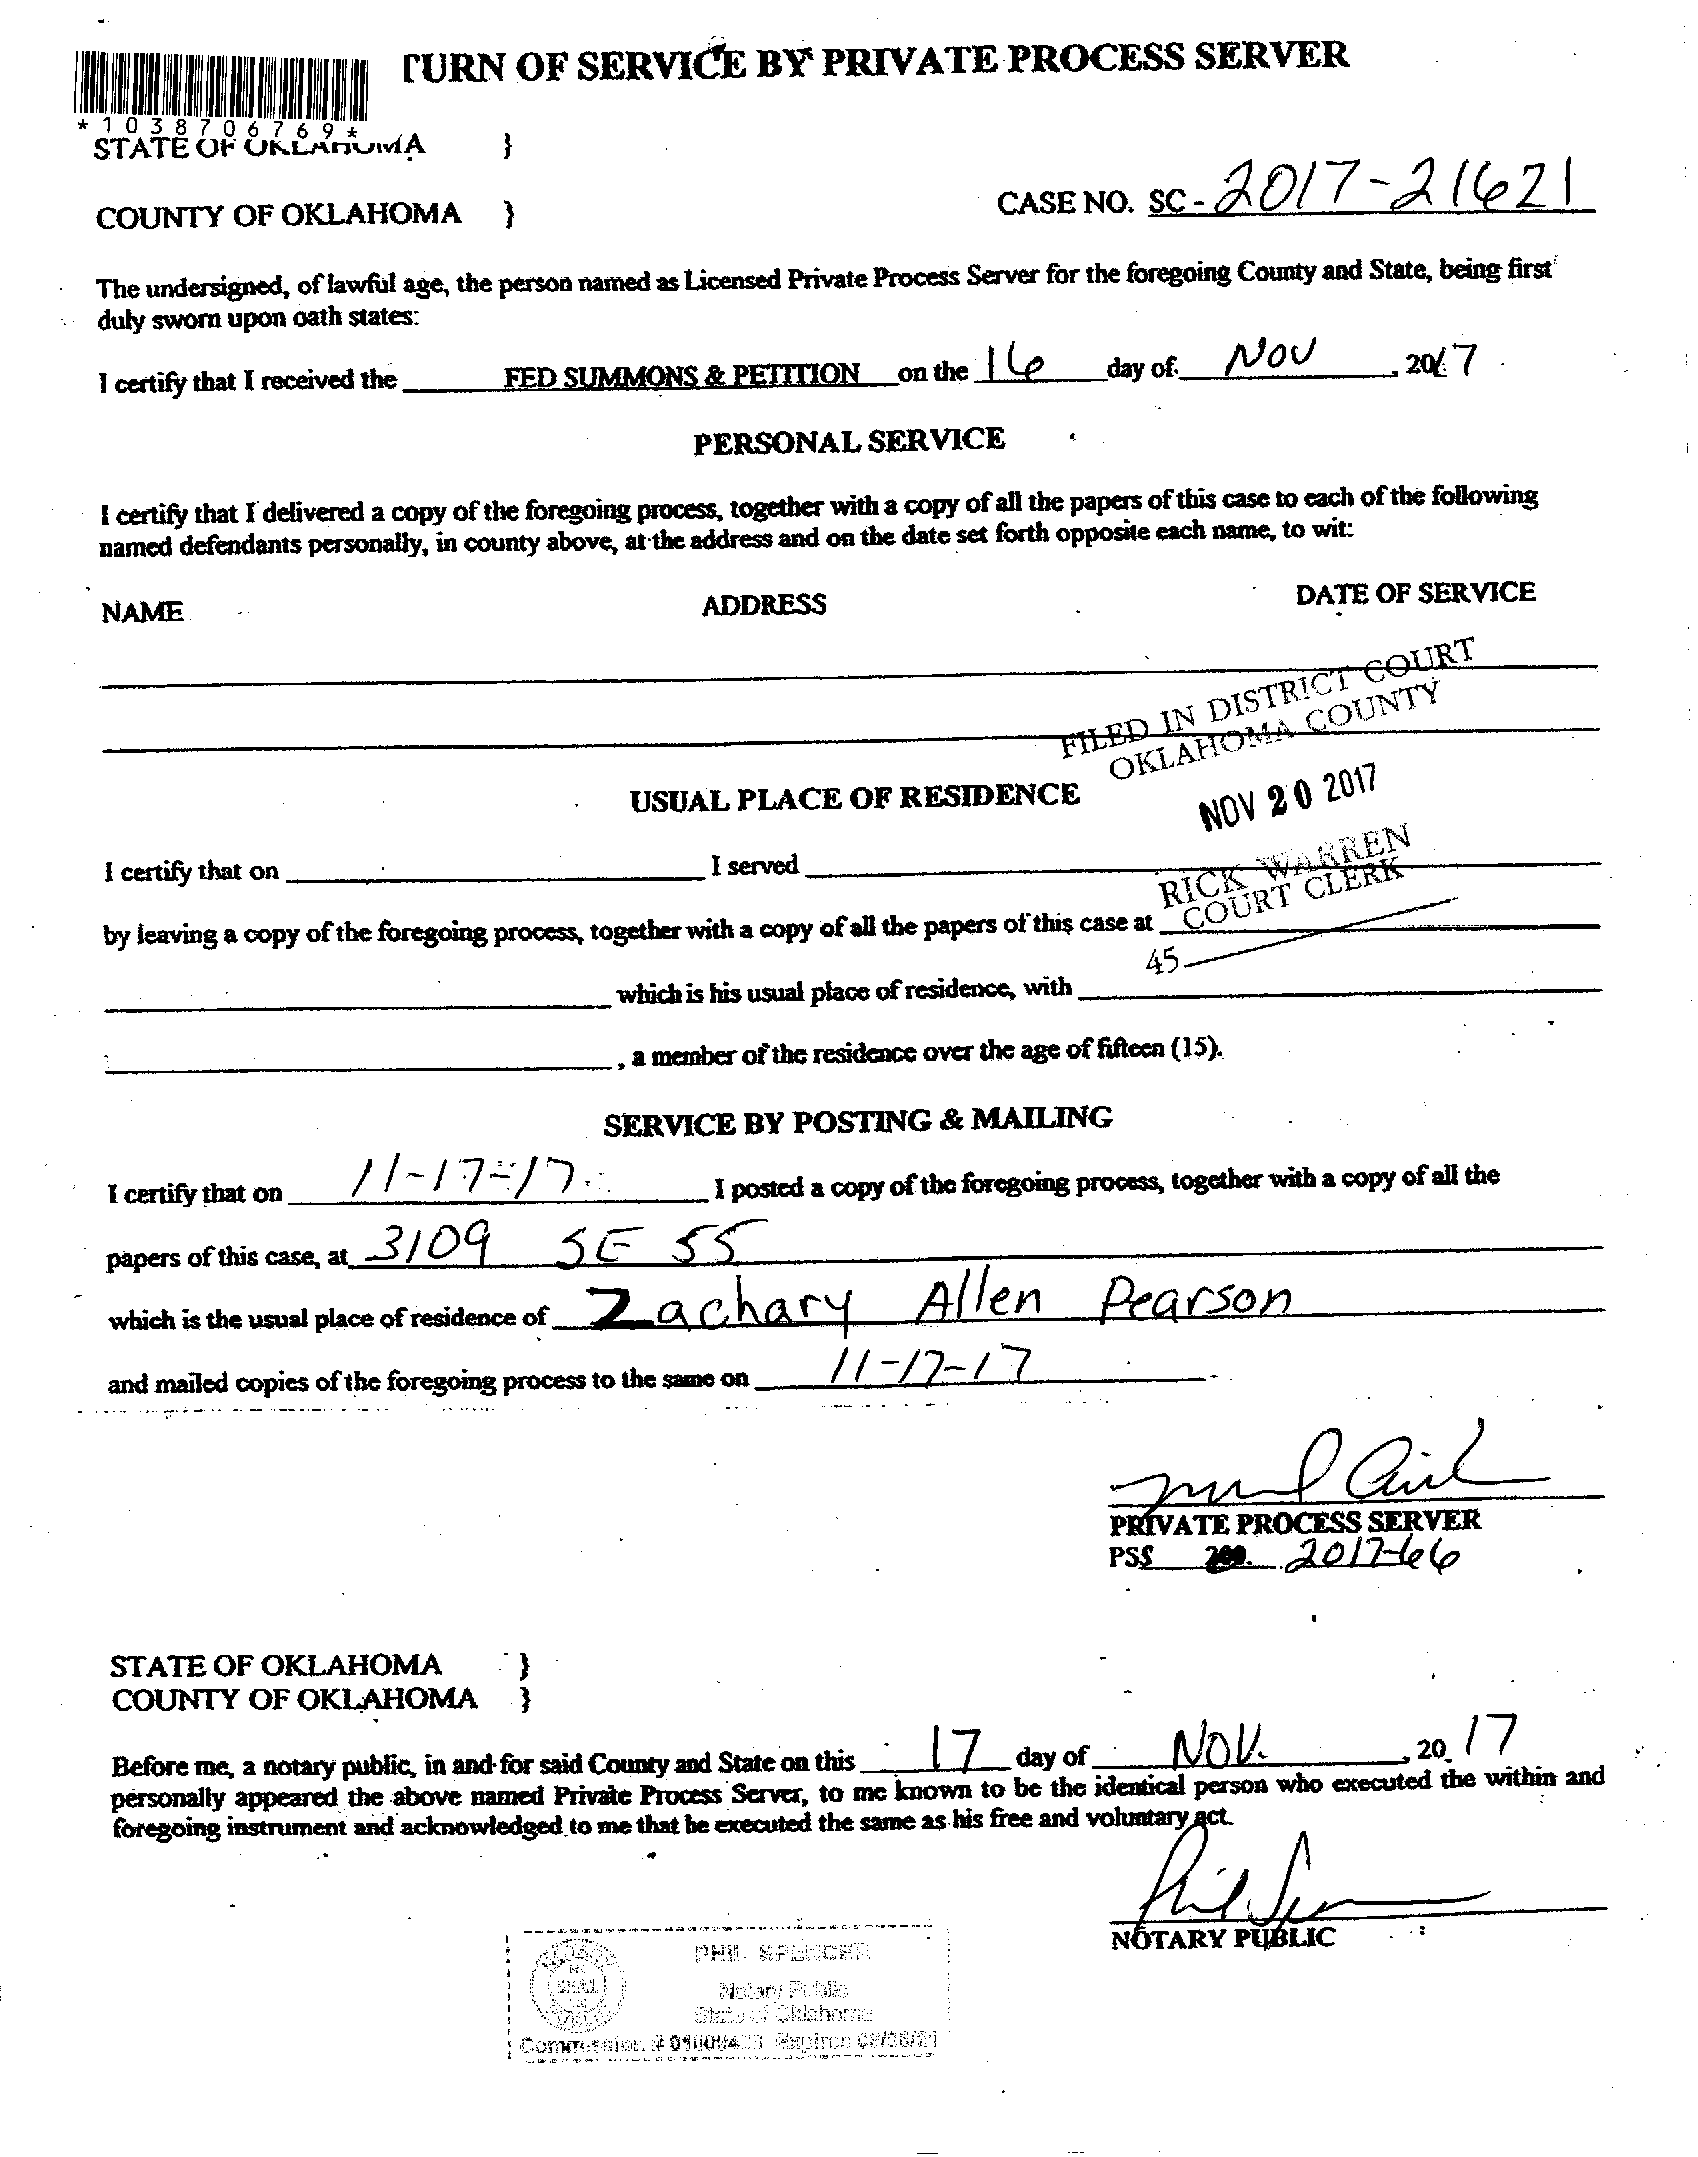 TURN OF SERVICE BY PRIVATE PROCESS SERVER
*1038706769*
STATE OF OKLAHOMA }
CASE NO. SC-2017-21621
COUNTY OF OKLAHOMA }
The undersigned, of lawful age, the person named as Licensed Private Process Server for the foregoing County and State, being first
duly sworn upon oath states:
I certify that I received the FED SUMMONS & PETITION on the 16 day of Nov, 2017
PERSONAL SERVICE
I certify that I delivered a copy of the foregoing process, together with a copy of all the papers of this case to each of the following
named defendants personally, in county above, at the address and on the date set forth opposite each name, to wit:
NAME ADDRESS DATE OF SERVICE
FILED IN DISTRICT COURT
OKLAHOMA COUNTY
USUAL PLACE OF RESIDENCE
NOV 20 2017
I certify that on I served
RICK WARREN
COURT CLERK
by leaving a copy of the foregoing process, together with a copy of all the papers of this case at
45
which is his usual place of residence, with
, a member of the residence over the age of fifteen (15).
SERVICE BY POSTING & MAILING
I certify that on 11-17-17 I posted a copy of the foregoing process, together with a copy of all the
papers of this case, at 3109 SE 55
which is the usual place of residence of Zachary Allen Pearson
and mailed copies of the foregoing process to the same on 11-17-17
PRIVATE PROCESS SERVER
PSS 2017-66
STATE OF OKLAHOMA }
COUNTY OF OKLAHOMA }
Before me, a notary public, in and for said County and State on this 17 day of Nov., 20 17
personally appeared the above named Private Process Server, to me known to be the identical person who executed the within and
foregoing instrument and acknowledged to me that he executed the same as his free and voluntary act.
NOTARY PUBLIC
PHIL SPENCER
Notary Public
State of Oklahoma
Commission # Expires